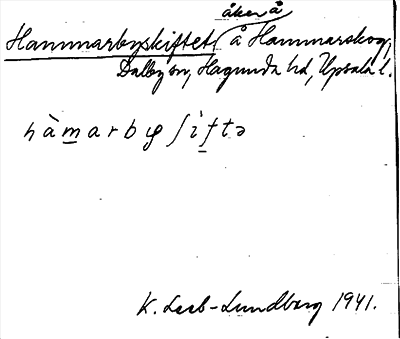 åker å
Hammarbyskiftet, å Hammarskog,
Dalby sn, Hagunda hd, Upsala l.
hàmarbyʃìftə
K. Leeb-Lundberg 1941.